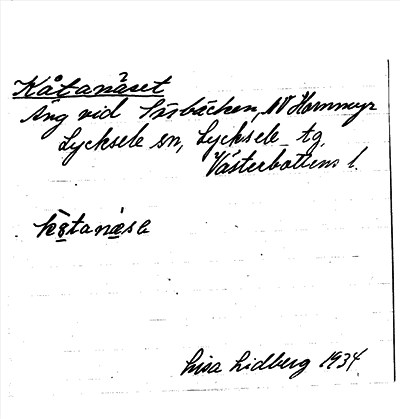 Kåtanäset
Äng vid bäcken, NV Hornmyr
Lycksele sn, Lycksele tg
Västerbottens l.
Lisa Lidberg 1934